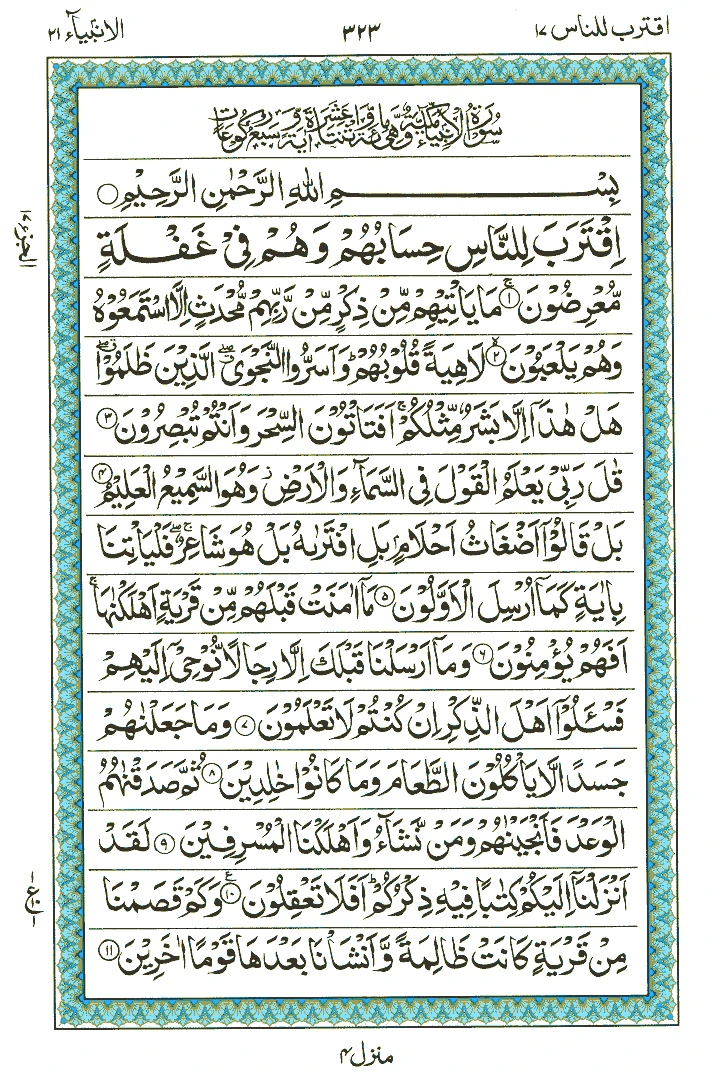 اقترب للناس ١٧
٣٢٣
الانبیآء ٢١
سُوْرَةُ الْاَنْبِيَآءِ مَكِّيَّةٌ وَّهِيَ مِائَةٌ وَّاثْنَتَا عَشْرَةَ اٰيَةً وَّسَبْعُ رُكُوْعَاتٍ
بِسْمِ اللّٰهِ الرَّحْمٰنِ الرَّحِيْمِ ○
اِقْتَرَبَ لِلنَّاسِ حِسَابُهُمْ وَهُمْ فِيْ غَفْلَةٍ
مُّعْرِضُوْنَ ۚ ١ مَا يَاْتِيْهِمْ مِّنْ ذِكْرٍ مِّنْ رَّبِّهِمْ مُّحْدَثٍ اِلَّا اسْتَمَعُوْهُ
وَهُمْ يَلْعَبُوْنَ ۙ ٢ لَاهِيَةً قُلُوْبُهُمْ ؕ وَاَسَرُّوا النَّجْوَى ۖۗ الَّذِيْنَ ظَلَمُوْا ۖۗ
هَلْ هٰذَآ اِلَّا بَشَرٌ مِّثْلُكُمْ ۚ اَفَتَاْتُوْنَ السِّحْرَ وَاَنْتُمْ تُبْصِرُوْنَ ٣
قٰلَ رَبِّيْ يَعْلَمُ الْقَوْلَ فِي السَّمَآءِ وَالْاَرْضِ ز وَهُوَ السَّمِيْعُ الْعَلِيْمُ ٤
بَلْ قَالُوْٓا اَضْغَاثُ اَحْلَامٍۭ بَلِ افْتَرٰىهُ بَلْ هُوَ شَاعِرٌ ۚۖ فَلْيَاْتِنَا
بِاٰيَةٍ كَمَآ اُرْسِلَ الْاَوَّلُوْنَ ٥ مَآ اٰمَنَتْ قَبْلَهُمْ مِّنْ قَرْيَةٍ اَهْلَكْنٰهَا ۚ
اَفَهُمْ يُؤْمِنُوْنَ ٦ وَمَآ اَرْسَلْنَا قَبْلَكَ اِلَّا رِجَالًا نُّوْحِيْٓ اِلَيْهِمْ
فَسْئَلُوْٓا اَهْلَ الذِّكْرِ اِنْ كُنْتُمْ لَا تَعْلَمُوْنَ ٧ وَمَا جَعَلْنٰهُمْ
جَسَدًا لَّا يَاْكُلُوْنَ الطَّعَامَ وَمَا كَانُوْا خٰلِدِيْنَ ٨ ثُمَّ صَدَقْنٰهُمُ
الْوَعْدَ فَاَنْجَيْنٰهُمْ وَمَنْ نَّشَآءُ وَاَهْلَكْنَا الْمُسْرِفِيْنَ ٩ لَقَدْ
اَنْزَلْنَآ اِلَيْكُمْ كِتٰبًا فِيْهِ ذِكْرُكُمْ ؕ اَفَلَا تَعْقِلُوْنَ ۧ ١٠ وَكَمْ قَصَمْنَا
مِنْ قَرْيَةٍ كَانَتْ ظَالِمَةً وَّاَنْشَاْنَا بَعْدَهَا قَوْمًا اٰخَرِيْنَ ١١
الجزء ١٧
ع
منزل ٤